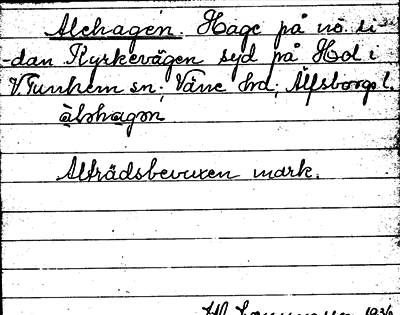 Alehagen. Hage på nö. si-
dan Kyrkevägen syd på Hol i
V Tunhem sn; Väne hd; Älfsborgs l.
àlɘhagɘn
Alträdsbevuxen mark.
1936